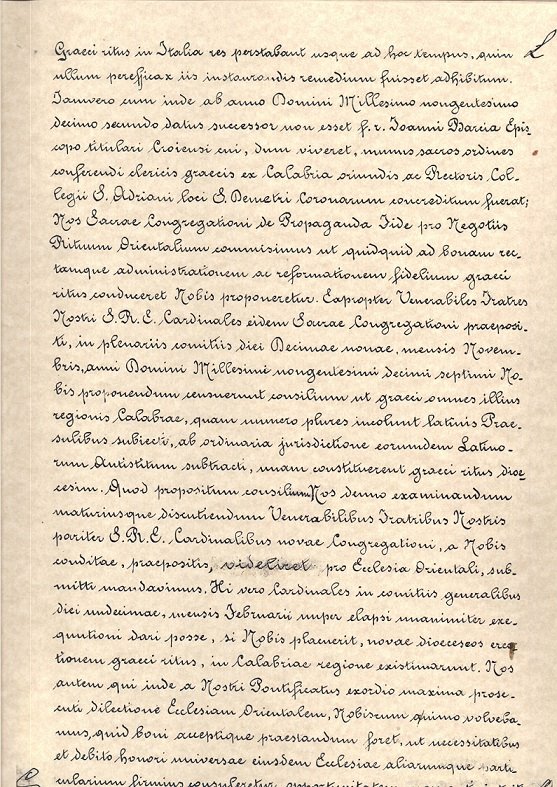 Graeci ritus in Italia res perstabant usque ad hoc tempus, quin
ullum perefficax iis instaurandis remedium fuisset adhibitum.
Iamvero cum inde ab anno Domini Millesimo nongentesimo
decimo secundo datus successor non esset f. r. Ioanni Barcia Epis-
copo titulari Croiensi cui, dum viveret, munus sacros ordines
conferendi clericis graecis ex Calabria oriundis ac Rectoris Col-
legii S. Adriani loci S. Demetri Coronarum concreditum fuerat;
Nos Sacrae Congregationi de Propaganda Fide pro Negotiis
Rituum Orientalium commisimus ut quidquid ad bonam rec-
tamque administrationem ac reformationem fidelium graeci
ritus conduceret Nobis proponeretur. Eapropter Venerabiles Fratres
Nostri S. R. E. Cardinales eidem Sacrae Congregationi praeposi-
ti, in plenariis comitiis diei Decimae nonae, mensis Novem-
bris, anni Domini Millesimi nongentesimi decimi septimi No-
bis proponendum censuerunt consilium ut graeci omnes illius
regionis Calabrae, quam numero plures incolunt latinis Prae-
sulibus subiecti, ab ordinaria jurisdictione eorumdem Latino-
rum Antistitum subtracti, unam constituerent graeci ritus dioe-
cesim. Quod propositum consilium Nos denuo examinandum
maturiusque discutiendum Venerabilibus Fratribus Nostris
pariter S. R. E. Cardinalibus novae Congregationi, a Nobis
conditae, praepositis, videlicet pro Ecclesia Orientali, sub-
mitti mandavimus. Hi vero Cardinales in comitiis generalibus
diei undecimae, mensis Februarii nuper elapsi unanimiter exe-
quutioni dari posse, si Nobis placuerit, novae dioeceseos erec-
tionem graeci ritus, in Calabriae regione existimarunt. Nos
autem qui inde a Nostri Pontificatus exordio maxima prose-
cuti dilectione Ecclesiam Orientalem, Nobiscum quimo volveba-
mus, quid boni acceptique praestandum foret, ut necessitatibus
et debito honori universae eiusdem Ecclesiae aliarumque parti-
cularium firmius consuleretur,